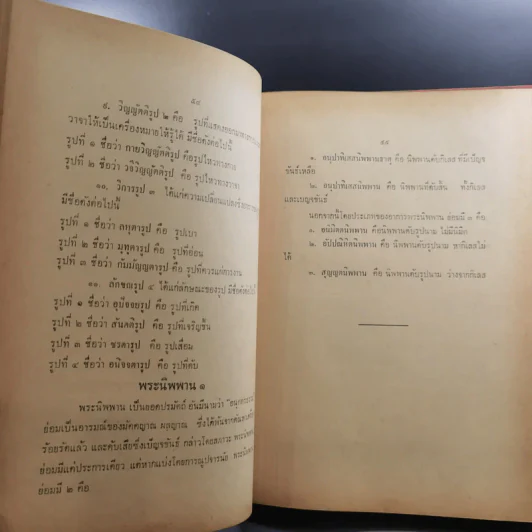 ๕๘
๙. วิญญัตติรูป ๒ คือ รูปที่แสดงออกมาทาง
วาจาให้เป็นเครื่องหมายให้รู้ได้ มีชื่อดังต่อไปนี้
รูปที่ ๑ ชื่อว่า กายวิญญัตติรูป คือรูปไหวทางกาย
รูปที่ ๒ ชื่อว่า วจีวิญญัตติรูป คือ รูปไหวทางวาจา
๑๐. วิการรูป ๓ ได้แก่ความเปลี่ยนแปลง
มีชื่อดังต่อไปนี้
รูปที่ ๑ ชื่อว่า ลหุตารูป คือ รูปเบา
รูปที่ ๒ ชื่อว่า มุทุตารูป คือ รูปที่อ่อน
รูปที่ ๓ ชื่อว่า กัมมัญญตารูป คือ รูปที่ควรแก่การงาน
๑๑. ลักขณรูป ๔ ได้แก่ลักษณะของรูป มีชื่อดังต่อไปนี้
รูปที่ ๑ ชื่อว่า อุปัจจยรูป คือ รูปที่เกิด
รูปที่ ๒ ชื่อว่า สันตติรูป คือ รูปที่เจริญขึ้น
รูปที่ ๓ ชื่อว่า ชรตารูป คือ รูปเสื่อม
รูปที่ ๔ ชื่อว่า อนิจจตารูป คือ รูปที่ดับ
พระนิพพาน ๑
พระนิพพาน เป็นยอดปรมัตถ์ อันมีนามว่า
ย่อมเป็นอารมณ์ของมัคคญาณ ผลญาณ ซึ่งได้พ้นจากตัณหา
ร้อยรัดแล้ว และดับเสียซึ่งเบ็ญจขันธ์ กล่าวโดยสภาวะ
ย่อมมีแต่ประการเดียว แต่หากแบ่งโดยการณูปจารนัย
ย่อมมี ๒ คือ
๕๙
๑. สอุปาทิเสสนิพพานธาตุ คือ นิพพานดับกิเลส ที่มีเบ็ญจ
ขันธ์เหลือ
๒. อนุปาทิเสสนิพพาน คือ นิพพานที่ดับสิ้น ทั้งกิเลส
และเบญจขันธ์
นอกจากนี้โดยประเภทของอาการการนิพพาน ย่อมมี ๓ คือ
๑. อนิมิตตนิพพาน คือนิพพานดับรูปนาม ไม่มีนิมิต
๒. อัปปณิหิตนิพพาน คือ นิพพานดับรูปนาม หากิเลสไม่
ได้
๓. สุญญตนิพพาน คือ นิพพานดับรูปนาม ว่างจากกิเลส